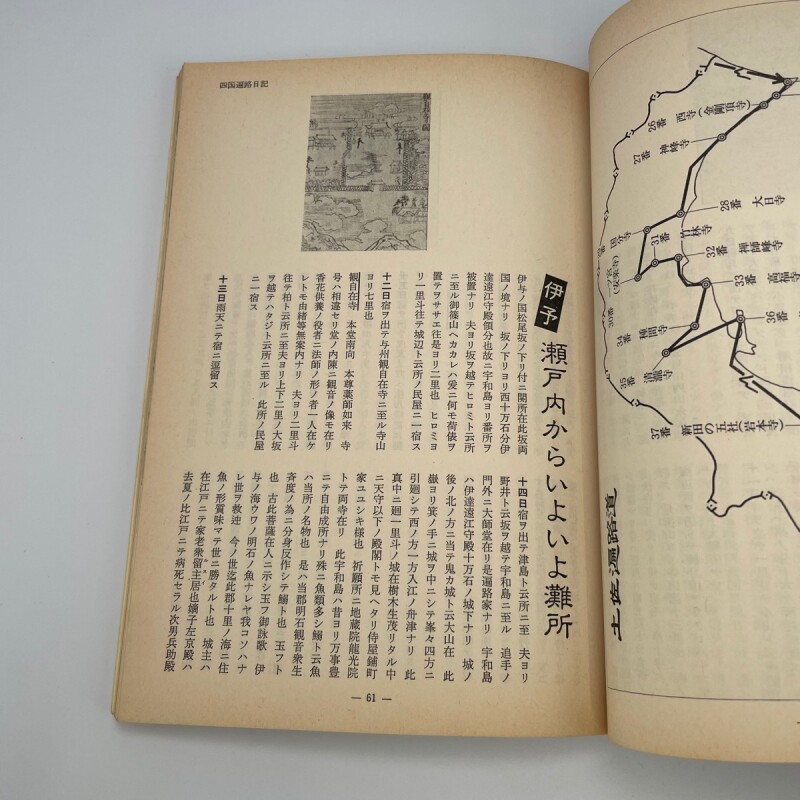 四国遍路日記
伊予
瀬戸内からいよいよ難所
伊与ノ国松尾坂ノ下リ付ニ関所在此坂両
国ノ境ナリ　坂ノ下リヨリ西十万石分伊
達遠江守殿領分也故ニ宇和島ヨリ番所ヲ
被置ナリ　夫ヨリ坂ヲ越テヒロミト云所
ニ至ル御篠山ヘカカレハ爰ニ何モ荷俵ヲ
置テヲササエ往是ヨリ二里也　ヒロミヨ
リ一里斗往テ城辺ト云所ノ民屋ニ一宿ス
十二日宿ヲ出テ与州観自在寺ニ至ル寺山
ヨリ七里也
観自在寺　本堂南向　本尊薬師如来　寺
号ハ相違セリ堂ノ内陳ニ観音ノ像モ在リ
香花供養ノ役者ニ法師ノ形ノ者一人在ケ
レトモ由緒等無案内ナリ　夫ヨリ二里斗
往テ柏ト云所ニ至夫ヨリ上下二里ノ大坂
ヲ越テハタジト云所ニ至ル　此所ノ民屋
ニ一宿ス
十三日雨天ニテ宿ニ逗留ス
十四日宿ヲ出テ津島ト云所ニ至　夫ヨリ
野井ト云坂ヲ越テ宇和島ニ至ル　追手ノ
門外ニ大師堂在リ是遍路家ナリ　宇和島
ハ伊達遠江守殿十万石ノ城下ナリ　城ノ
後ノ北ノ方ニ当テ鬼カ城ト云大山在　此
嶽ヨリ箕ノ手ニ城ヲ中ニシテ峯々四方ニ
引廻シテ西ノ方一方入江ノ舟津ナリ　此
真中ニ廻一里斗ノ城在樹木生茂リタル中
ニ天守以下ノ殿閣トモ見ヘタリ侍屋鋪町
家ユユシキ様也　祈願所ニ地蔵院龍光院
トテ両寺在リ　此宇和島ハ昔ヨリ万事豊
ニテ自由成所ナリ殊ニ魚類多シ鰯ト云魚
ハ当所ノ名物也　是ハ当郡明石観音衆生
斉度ノ為ニ分身反作シテ鰯ト也　玉フト
也　古此菩薩在人ニ示シ玉フ御詠歌　伊
与ノ海ウワノ明石ノ魚ナレヤ我コソハナ
レ世ヲ救迚　今ノ世迄此郡十里ノ海ニ住
魚ノ形質味マテ世ニ勝タルト也　城主ハ
在江戸ニテ家老衆留主居也嫡子左京殿ハ
去夏ノ比江戸ニテ病死セラル次男兵助殿
— 61 —
26番　西寺（金剛頂寺）
27番　神峰寺
28番　大日寺
国分寺
31番　竹林寺
32番　禅師峰寺
33番　高福寺
34番　種間寺
35番　清瀧寺
36番
37番　新田の五社（岩本寺）
土佐遍路道